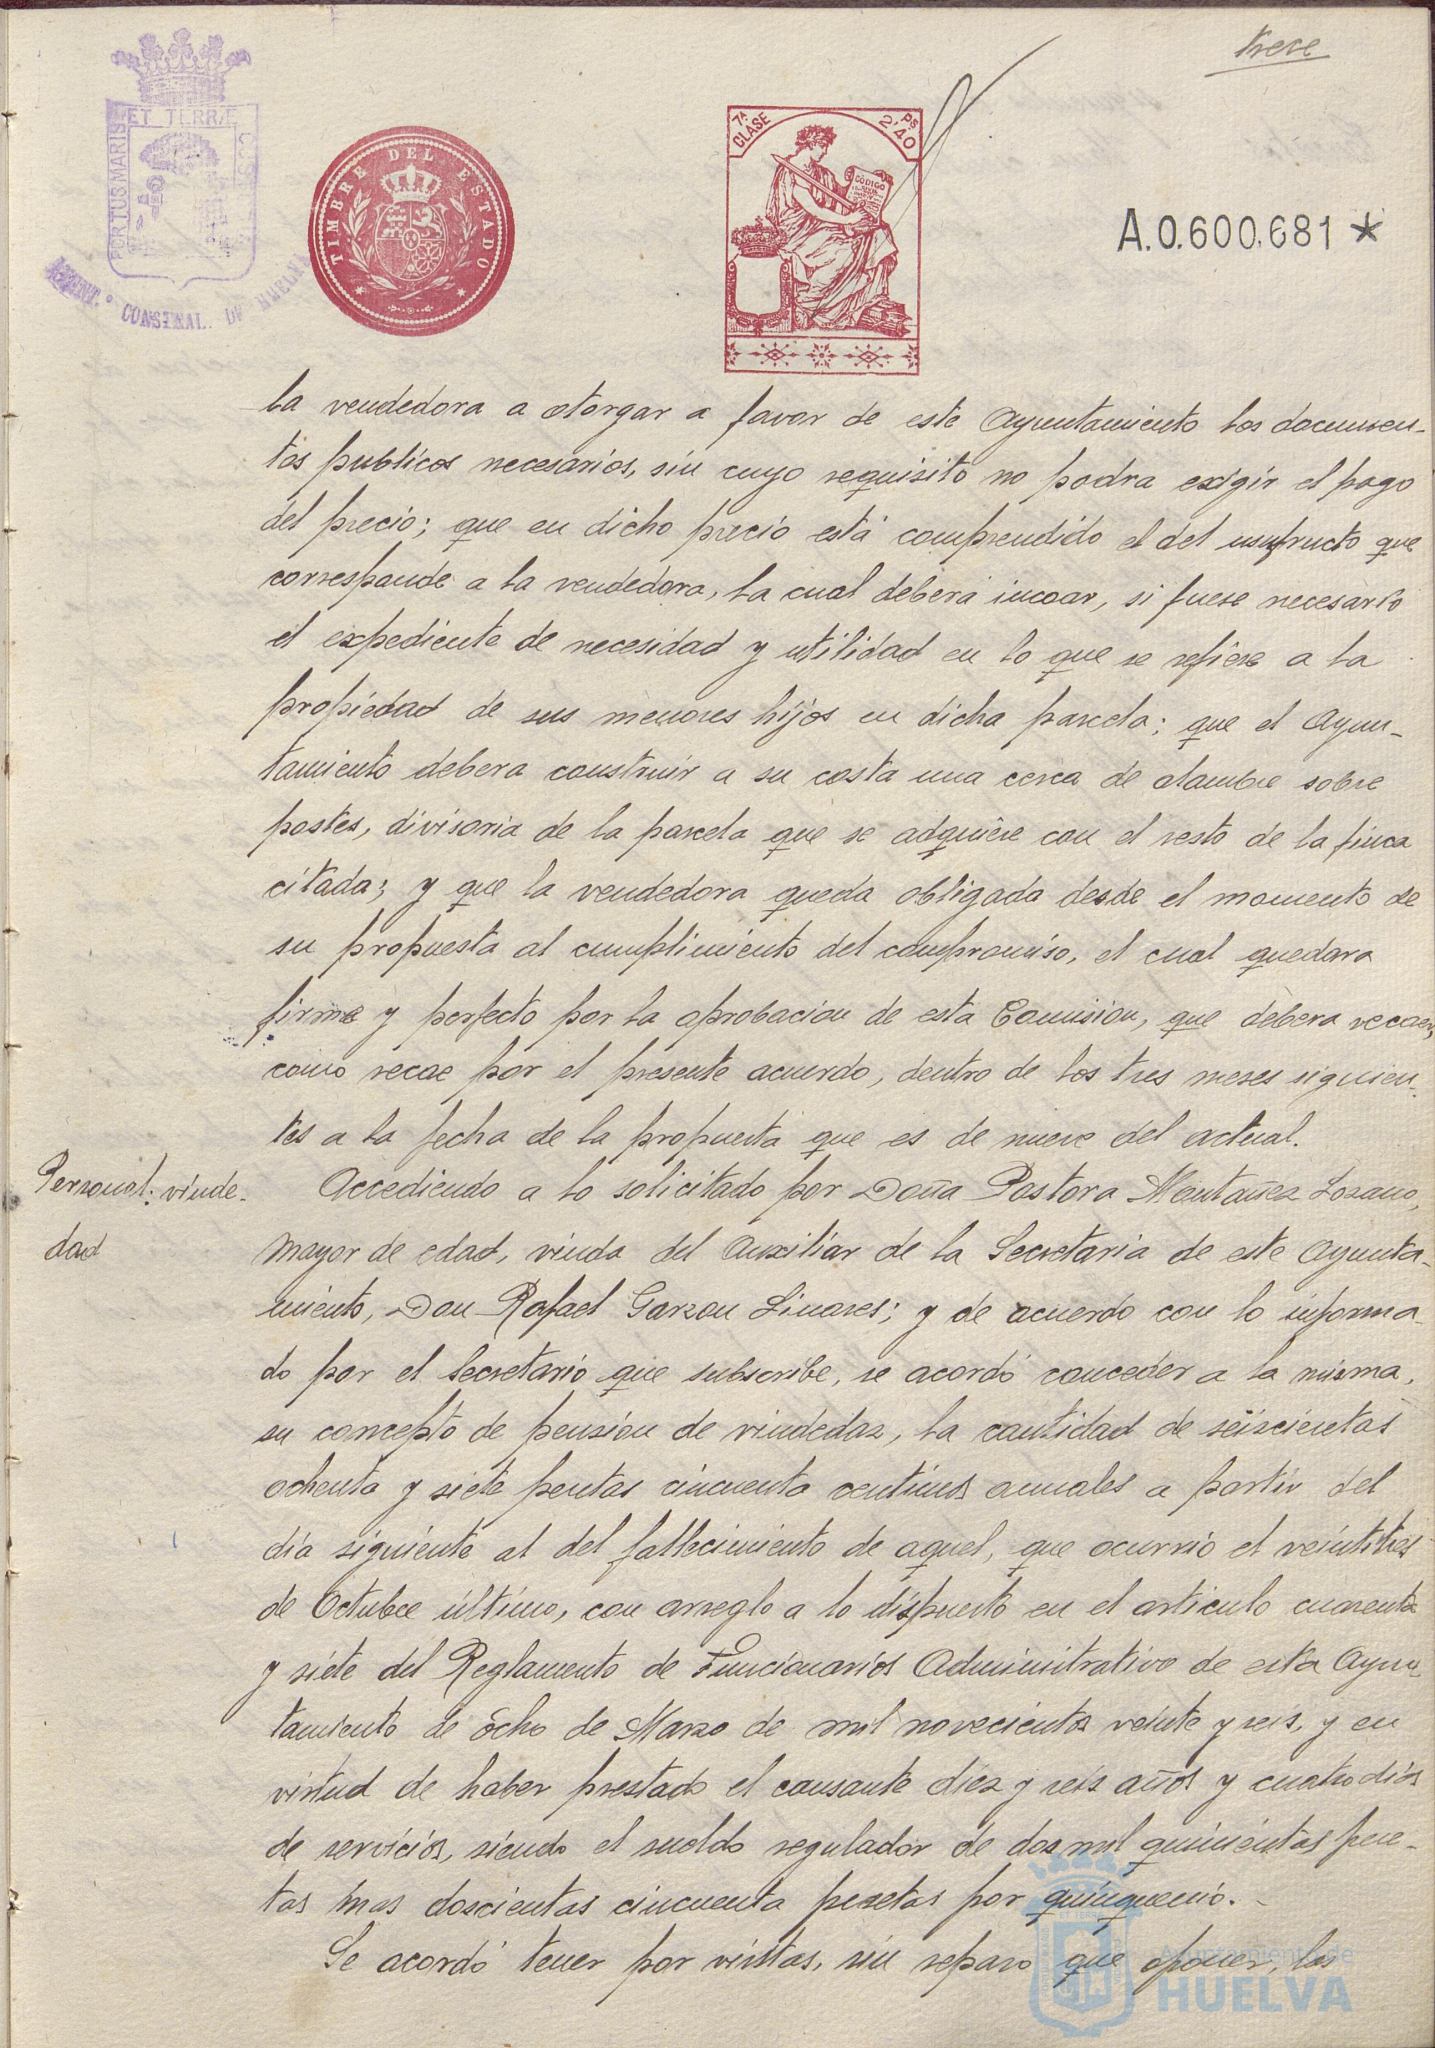 trece
ET TERRÆ
PORTUS MARIS
CUS
AYUNT. CONSTNAL. DE HUELVA
TIMBRE DEL ESTADO
7ª CLASE
Ps 2'40
CÓDIGO
A.0.600.681 *
la vendedora a otorgar a favor de este Ayuntamiento los documen-
tos publicos necesarios, sin cuyo requisito no podra exigir el pago
del precio; que en dicho precio está comprendido el del usufructo que
corresponde a la vendedora, la cual deberá incoar, si fuese necesario
el expediente de necesidad y utilidad en lo que se refiere a la
propiedad de sus menores hijos en dicha parcela; que el Ayun-
tamiento debera construir a su costa una cerca de alambre sobre
postes, divisoria de la parcela que se adquiere con el resto de la finca
citada; y que la vendedora queda obligada desde el momento de
su propuesta al cumplimiento del compromiso, el cual quedara
firme y perfecto por la aprobacion de esta Comision, que debera recaer,
como recae por el presente acuerdo, dentro de los tres meses siguien-
tes a la fecha de la propuesta que es de nueve del actual.
Personal: viude-
dad
Accediendo a lo solicitado por Doña Pastora Montañez Lozano,
mayor de edad, viuda del Auxiliar de la Secretaria de este Ayunta-
miento, Don Rafael Garzon Linares; y de acuerdo con lo informa-
do por el Secretario que subscribe, se acordó conceder a la misma,
en concepto de pension de viudedaz, la cantidad de seiscientas
ochenta y siete pesetas cincuenta centimos anuales a partir del
dia siguiente al del fallecimiento de aquel, que ocurrió el veintitres
de Octubre último, con arreglo a lo dispuesto en el articulo cuarenta
y siete del Reglamento de Funcionarios Administrativo de esta Ayun-
tamiento de ocho de Marzo de mil novecientos veinte y seis, y en
virtud de haber prestado el causante diez y seis años y cuatro dias
de servicios, siendo el sueldo regulador de dos mil quinientas pese-
tas mas doscientas cincuenta pesetas por quinquenio.-
Se acordó tener por vistas, sin reparo que oponer, las
Ayuntamiento de
HUELVA